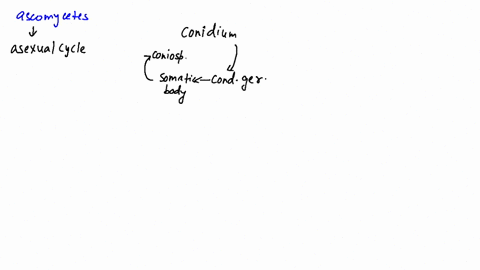 ascomycetes
asexual cycle
Conidium
coniosp.
somatic
body
Cond. ger.